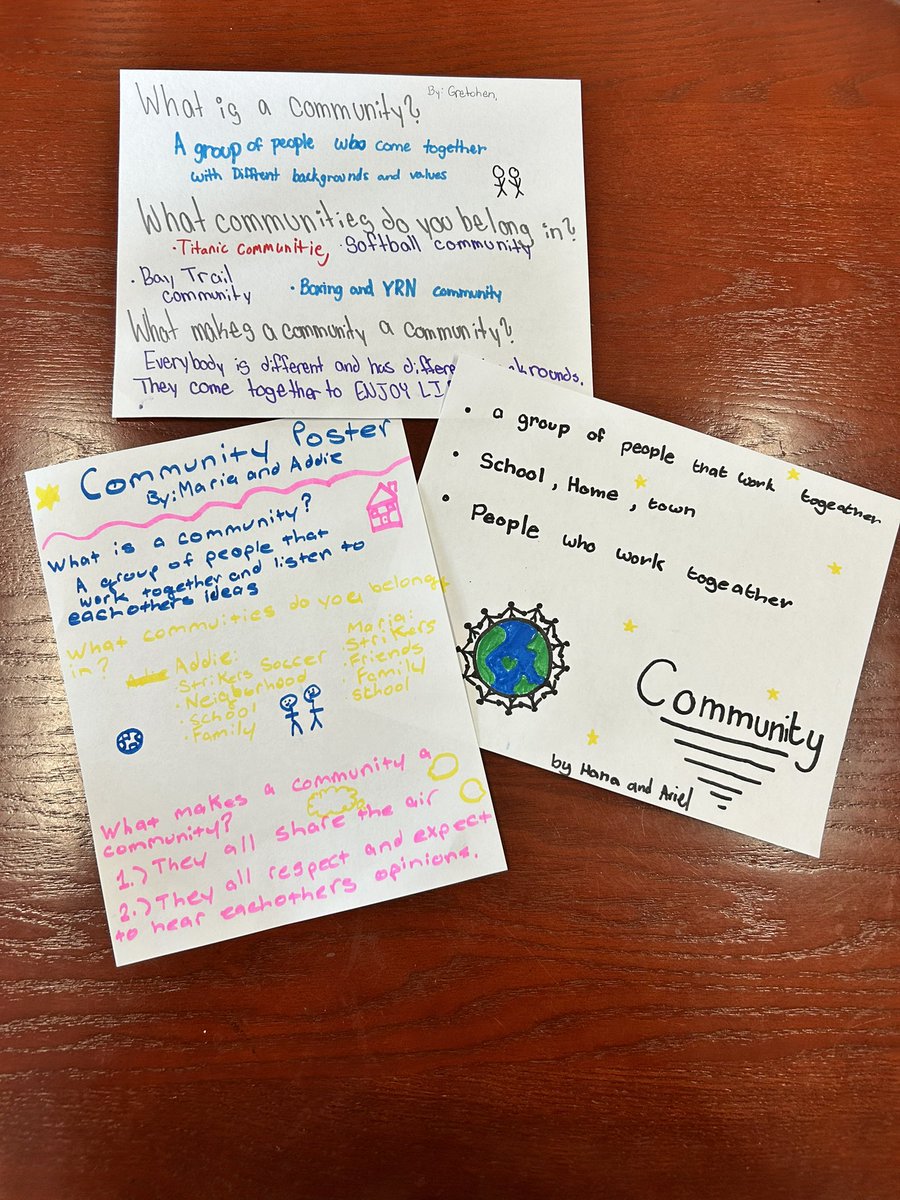 What is a community?
By: Gretchen,
A group of people who come together
with Different backgrounds and values
What communities do you belong in?
· Titanic communitie, · Softball community
· Bay Trail community
· Boxing and YRN community
What makes a community a community?
Everybody is different and has differe
krounds.
They come together to ENJOY LI
Community Poster
By: Maria and Addie
What is a community?
A group of people that
work together and listen to
eachothers ideas
What commuities do you belong
in?
Addie:
Strikers Soccer
· Neighborhood
· School
· Family
Maria:
· Strikers
· Friends
· Family
school
What makes a community a
community?
1.) They all share the air
2.) They all respect and expect
to hear eachothers opinions.
• a group of people that work togeather
• School, Home, town
• People who work togeather
Community
by Hana and Ariel